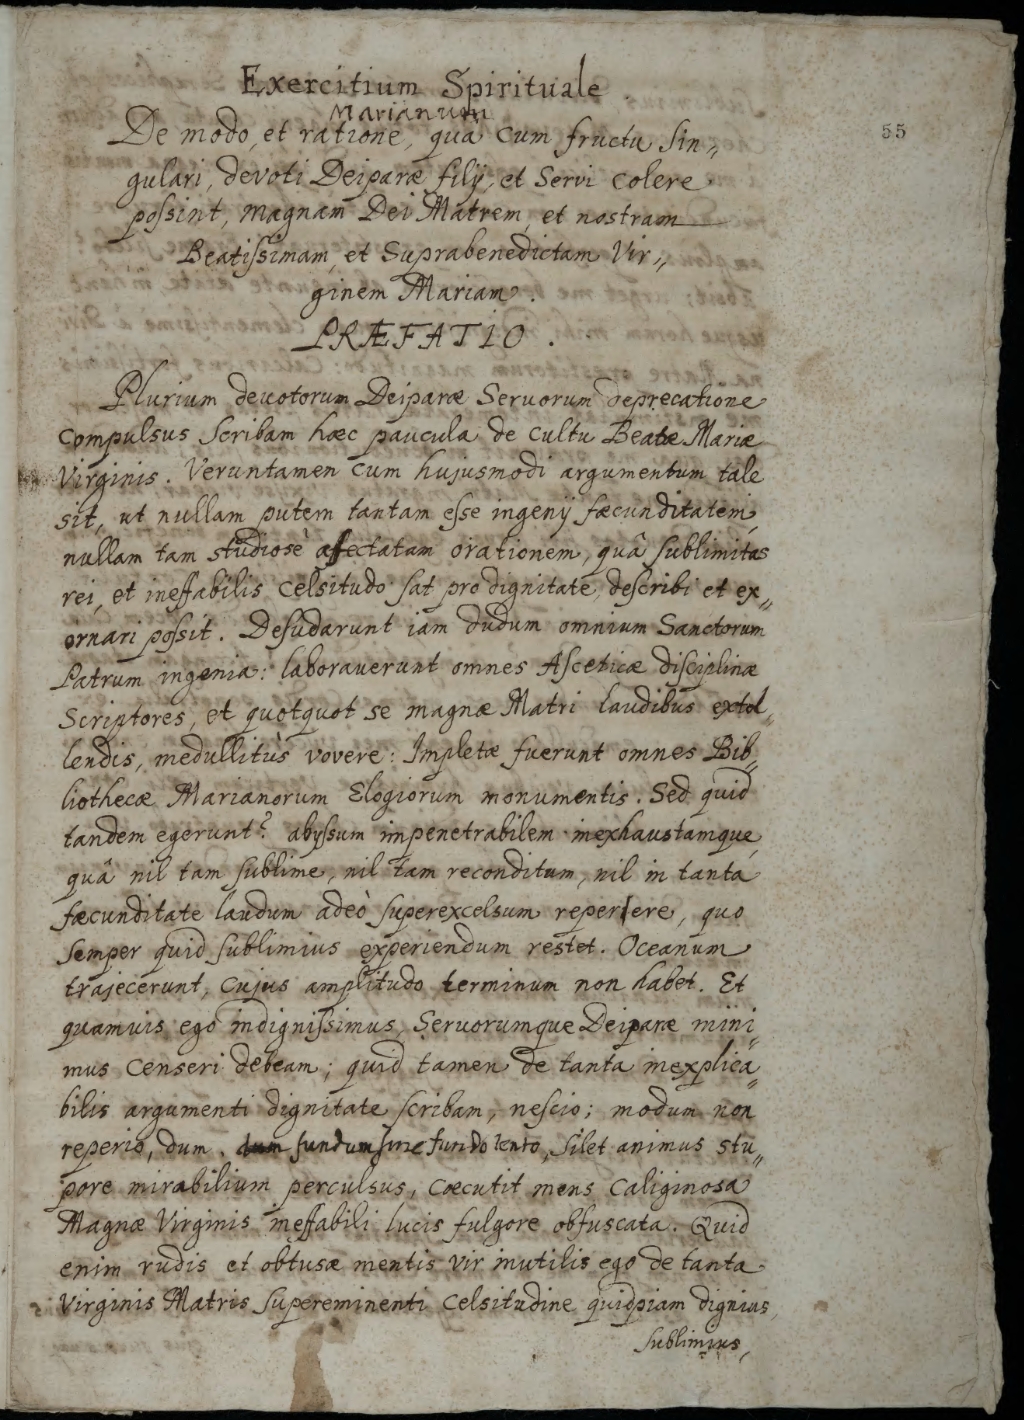 Exercitium Spirituale
Marianum
De modo, et ratione, quâ cum fructu sin„
55
gulari, devoti Deiparæ filij, et Servi colere
possint, magnam Dei Matrem, et nostram
Beatissimam, et Suprabenedictam Vir„
ginem Mariam.
PRÆFATIO.
Plurium devotorum Deiparæ Servorum deprecatione
compulsus scribam hæc paucula de cultu Beatæ Mariæ
Virginis. Veruntamen cum hujusmodi argumentum tale
sit, ut nullam putem tantam esse ingenij fæcunditatem,
nullam tam studiosè afectatam orationem, quâ sublimitas
rei, et ineffabilis celsitudo sat pro dignitate, describi et ex„
ornari possit. Desudarunt iam dudum omnium Sanctorum
Patrum ingenia: laboraverunt omnes Asceticæ disciplinæ
Scriptores, et quotquot se magnæ Matri laudibus extol„
lendis, medullitùs vovere: Impletæ fuerunt omnes Bib„
liothecæ Marianorum Elogiorum monumentis. Sed quid
tandem egerunt? abyssum impenetrabilem inexhaustamque,
quâ nil tam sublime, nil tam reconditum, nil in tanta
fæcunditate laudum adeò superexcelsum reperiere, quo
semper quid sublimius experiendum restet. Oceanum
trajecerunt, cujus amplitudo terminum non habet. Et
quamvis ego indignissimus, Servorumque Deiparæ mini„
mus censeri debeam; quid tamen de tanta inexplica„
bilis argumenti dignitate scribam, nescio; modum non
reperio, dum. fundum sine fundo tento, silet animus stu„
pore mirabilium perculsus, cœcutit mens caliginosa
Magnæ Virginis ineffabili lucis fulgore obfuscata. Quid
enim rudis et obtusæ mentis vir inutilis ego de tanta
Virginis Matris supereminenti celsitudine quidpiam dignius,
sublimius,